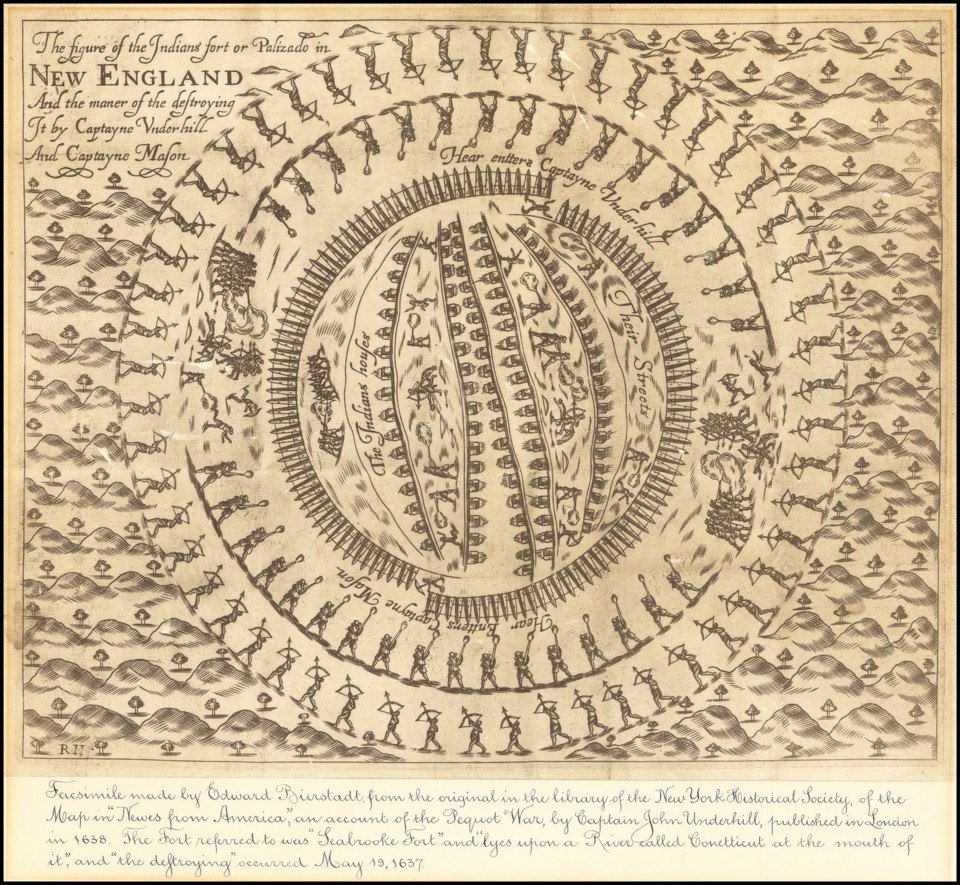 The figure of the Indians fort or Palizado in
NEW ENGLAND
And the maner of the destroying
It by Captayne Vnderhill
And Captayne Mason
Hear entters Captayne Vnderhill
Their Streets
The Indians houses
Hear Entters Captayne Mason
RH
Facsimile made by Edward Bierstadt, from the original in the library of the New York Historical Society, of the
Map in "Newes from America", an account of the Pequot War, by Captain John Underhill, published in London
in 1638. The Fort referred to was "Seabrooke Fort" and "lyes upon a River called Conetticut at the mouth of
it", and "the destroying" occurred May 19, 1637